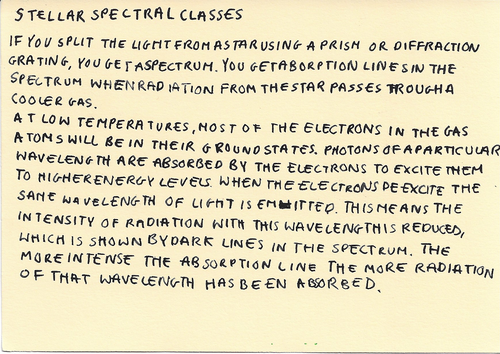 STELLAR SPECTRAL CLASSES
IF YOU SPLIT THE LIGHT FROM A STAR USING A PRISM OR DIFFRACTION
GRATING, YOU GET A SPECTRUM. YOU GET ABORPTION LINES IN THE
SPECTRUM WHEN RADIATION FROM THE STAR PASSES TROUGH A
COOLER GAS.
AT LOW TEMPERATURES, MOST OF THE ELECTRONS IN THE GAS
ATOMS WILL BE IN THEIR GROUND STATES. PHOTONS OF A PARTICULAR
WAVELENGTH ARE ABSORBED BY THE ELECTRONS TO EXCITE THEM
TO HIGHER ENERGY LEVELS. WHEN THE ELECTRONS DE EXCITE THE
SAME WAVELENGTH OF LIGHT IS EMITTED. THIS MEANS THE
INTENSITY OF RADIATION WITH THIS WAVELENGTH IS REDUCED,
WHICH IS SHOWN BY DARK LINES IN THE SPECTRUM. THE
MORE INTENSE THE ABSORPTION LINE THE MORE RADIATION
OF THAT WAVELENGTH HAS BEEN ABSORBED.